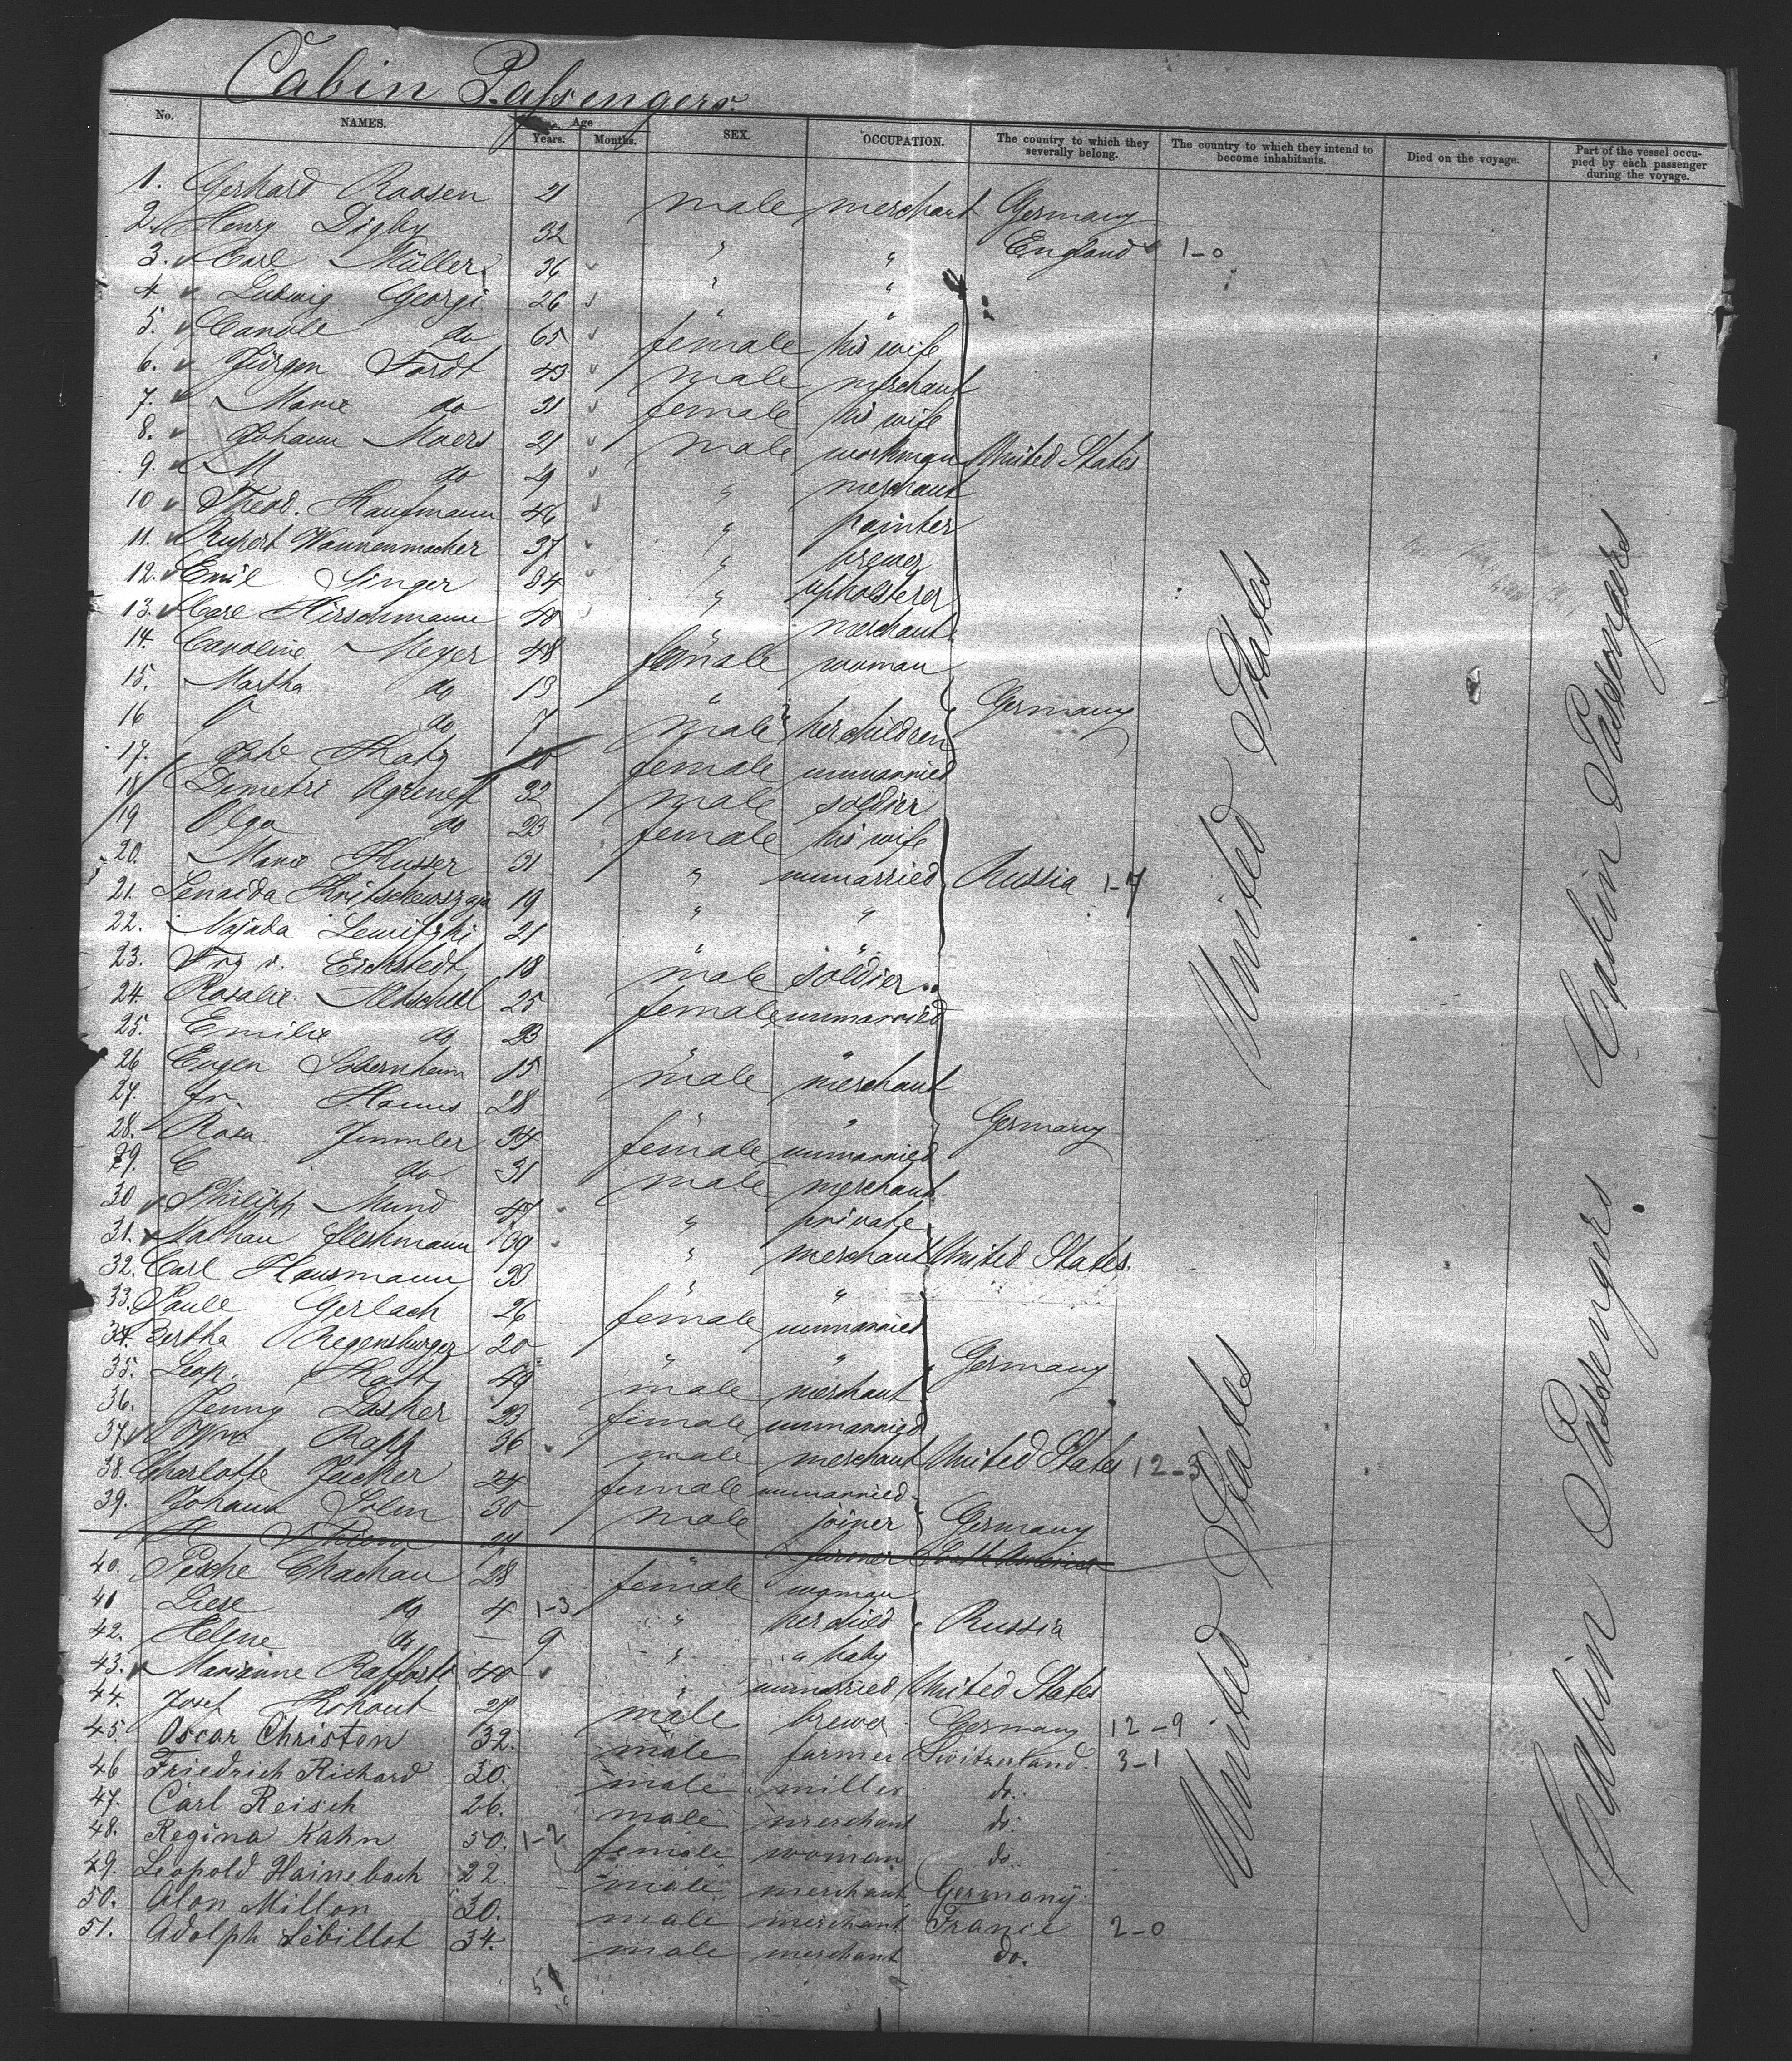 Cabin Passengers.
No. NAMES. Age Years. Months. SEX. OCCUPATION. The country to which they severally belong. The country to which they intend to become inhabitants. Died on the voyage. Part of the vessel occupied by each passenger during the voyage.
1. Gerhard Roosen 21 male merchant Germany
2. Henry Digby 32 " " England 1-0
3. Carl Müller 36 " "
4 Ludwig Georgi 26 " "
5. do 65 female his wife
6. Jürgen Fordt 43 male merchant
7. Marie do 31 female his wife
8. Johann Moers 21 male workman United States
9. M do 29 " merchant
10 Theod. Kaufmann 46 " painter
11. Rupert Wannenmacher 37 " brewer
12. Emil Singer 34 " upholsterer
13. Carl Hirschmann 40 " merchant
14. Caroline Meyer 48 female woman
15. Martha do 13 " Germany
16 do 7 male her children
17. Katz female unmarried
18 Demetri Agreneff 32 male soldier
19 Olga do 23 female his wife
20. Marie Kusser 31 " unmarried Russia 1-7
21. 19 " "
22. 21 " "
23. v. Eickstedt 18 male soldier
24. Rosalie 25 female unmarried
25. Emilie do 23 " "
26 Eugen 15 male merchant
27. Fr. 28 " " Germany
28. Rosa 34 female unmarried
29. C do 31 male merchant
30 Philipp Mund 47 " private
31. Nathan 39 " merchant United States.
32. Carl Hausmann 33 " "
33. Gerlach 26 female unmarried
34. Bertha Regensburger 20 " " Germany
35. Leop. 49 male merchant
36. Jenny Lasker 23 female unmarried
37. Rapp 36 male merchant United States 12-3
38. Charlotte 24 female unmarried
39. Johann 30 male joiner Germany
H. farmer
40. Chachau 28 female woman
41 Liese do 4 1-3 " her child Russia
42. Helene do — 9 " a baby
43. Marianne 40 " unmarried United States
44. Josef Kohout 27 male brewer Germany 12-9
45. Oscar Christen 32. male farmer Switzerland. 3-1
46 Friedrich Richard 30. male miller do.
47. Carl Reisch 26. male merchant do.
48. Regina Kahn 50. 1-2 female woman do.
49. Leopold Hainebach 22. male merchant Germany
50. Alon Millon 30. male merchant France 2-0
51. Adolph Libillot 34. male merchant do.
51
United States
United States
Cabin Passengers
Cabin Passengers